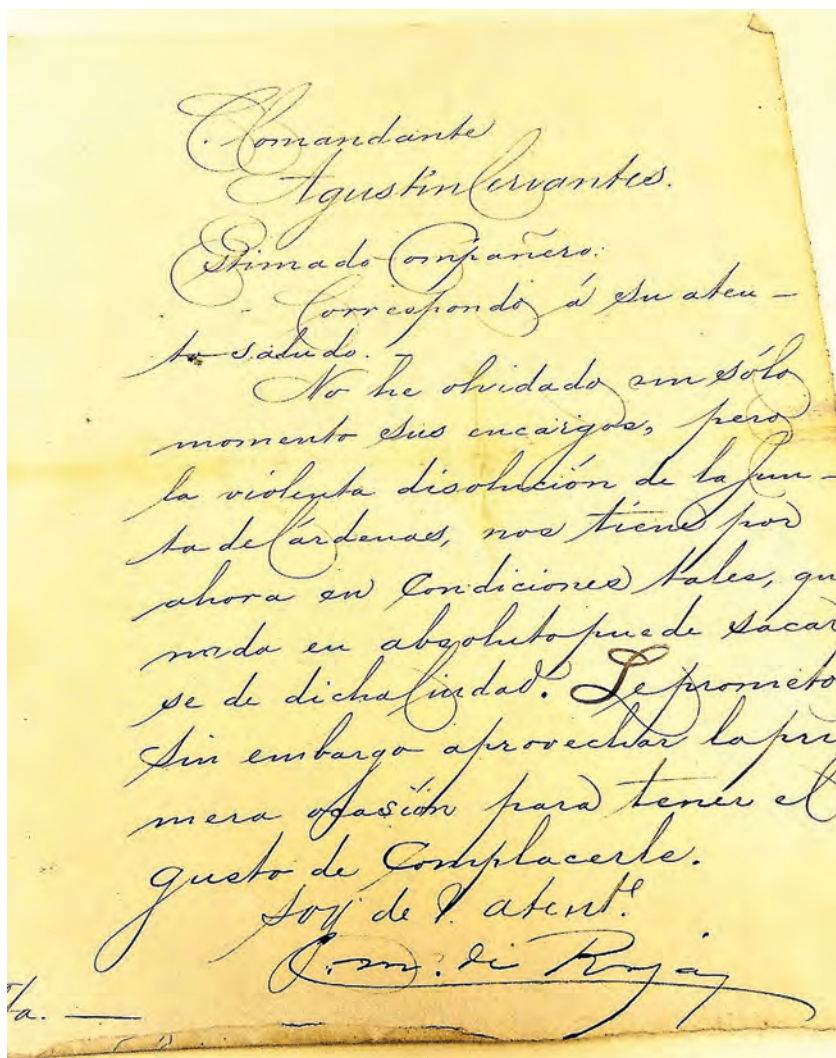 Comandante
Agustin Cervantes.
Estimado Compañero:
Correspondo á su aten-
to saludo.-
No he olvidado un sólo
momento sus encargos, pero
la violenta disolución de la Jun-
ta de Cárdenas, nos tiene por
ahora en Condiciones tales, qu
nada en absoluto puede sacar
se de dicha Ciudad. Le prometo
sin embargo aprovechar la pri
mera ocasión para tener el
gusto de Complacerle.
Soy de V. atent.e
C. M. de Rojas
ta. —